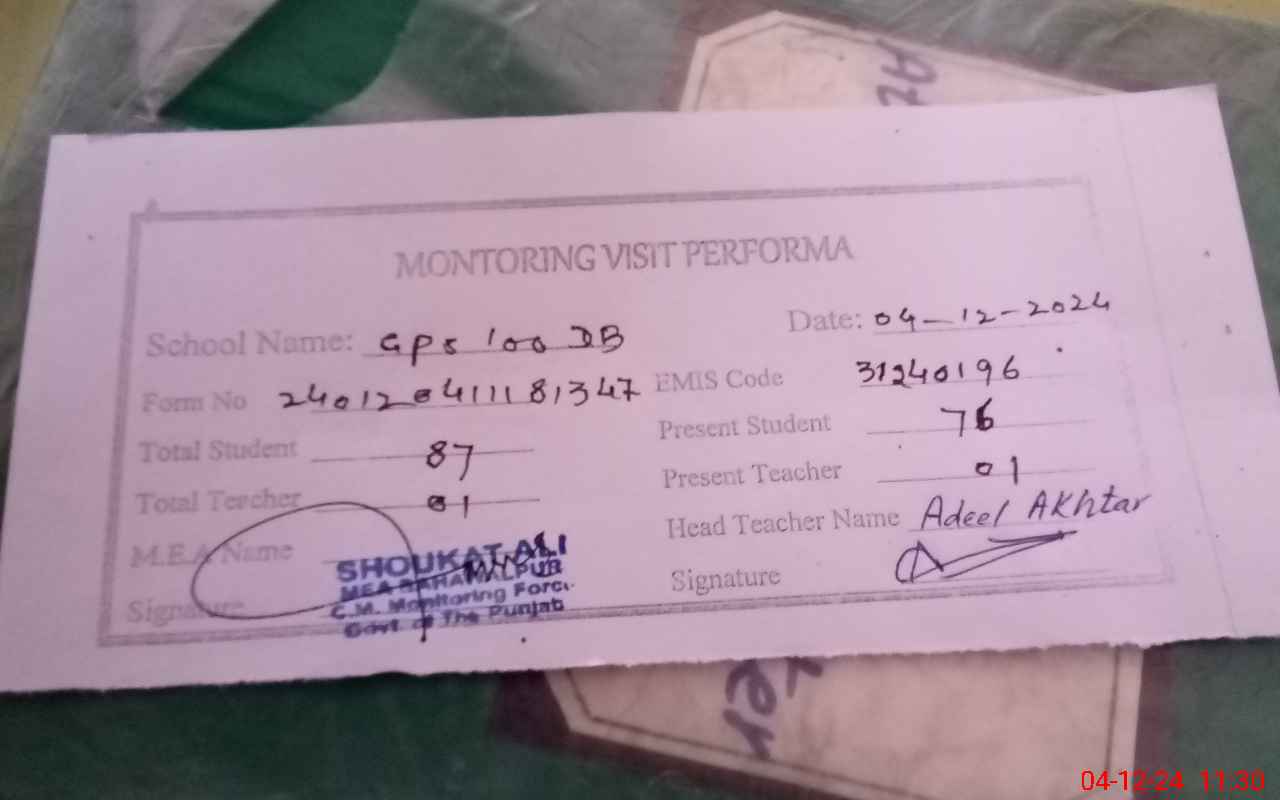 MONTORING VISIT PERFORMA
School Name: GPS 100 DB Date: 04-12-2024
Form No 240120411181347 EMIS Code 31240196
Total Student 87 Present Student 76
Total Tercher 01 Present Teacher 01
M.E.A Name Head Teacher Name Adeel AKhtar
SHOUKAT ALI
MEA BAHAWALPUR
C.M. Monitoring Force
Govt. of The Punjab
Signature Signature
04-12-24 11:30